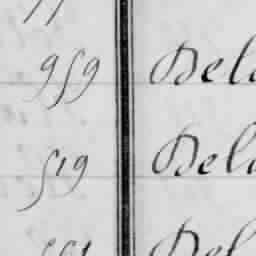 959 Dela
519 Dela
551 Del